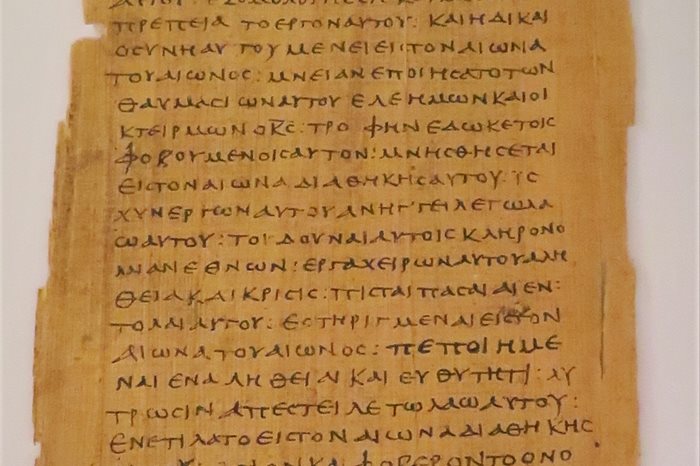 ΠΡΕΠΕΙΑΤΟΕΡΓΟΝΑΥΤΟΥ: ΚΑΙΗΔΙΚΑΙ
ΟCΥΝΗΑΥΤΟΥΜΕΝΕΙΕΙCΤΟΝΑΙΩΝΑ
ΤΟΥΑΙΩΝΟC: ΜΝΕΙΑΝΕΠΟΙΗCΑΤΟΤΩΝ
ΘΑΥΜΑCΙΩΝΑΥΤΟΥΕΛΕΗΜΩΝΚΑΙΟΙ
ΚΤΕΙΡΜΩΝΟΚ̅C̅: ΤΡΟΦΗΝΕΔΩΚΕΤΟΙC
ΦΟΒΟΥΜΕΝΟΙCΑΥΤΟΝ: ΜΝΗCΘΗCΕΤΑΙ
ΕΙCΤΟΝΑΙΩΝΑΔΙΑΘΗΚΗCΑΥΤΟΥ: ΥC
ΧΥΝΕΡΓΩΝΑΥΤΟΥΑΝΗΓΓΕΙΛΕΤΩΛΑ
ΩΑΥΤΟΥ: ΤΟΥΔΟΥΝΑΙΑΥΤΟΙCΚΛΗΡΟΝΟ
ΜΙΑΝΕΘΝΩΝ: ΕΡΓΑΧΕΙΡΩΝΑΥΤΟΥΑΛΗ
ΘΕΙΑΚΑΙΚΡΙCΙC: ΠΙCΤΑΙΠΑCΑΙΑΙΕΝ:
ΤΟΛΑΙΑΥΤΟΥ: ΕCΤΗΡΙΓΜΕΝΑΙΕΙCΤΟΝ
ΑΙΩΝΑΤΟΥΑΙΩΝΟC: ΠΕΠΟΙΗΜΕ
ΝΑΙΕΝΑΛΗΘΕΙΑΙΚΑΙΕΥΘΥΤΗΤΙ: ΛΥ
ΤΡΩCΙΝΑΠΕCΤΕΙΛΕΤΩΛΑΩΑΥΤΟΥ:
ΕΝΕΤΙΛΑΤΟΕΙCΤΟΝΑΙΩΝΑΔΙΑΘΗΚΗC